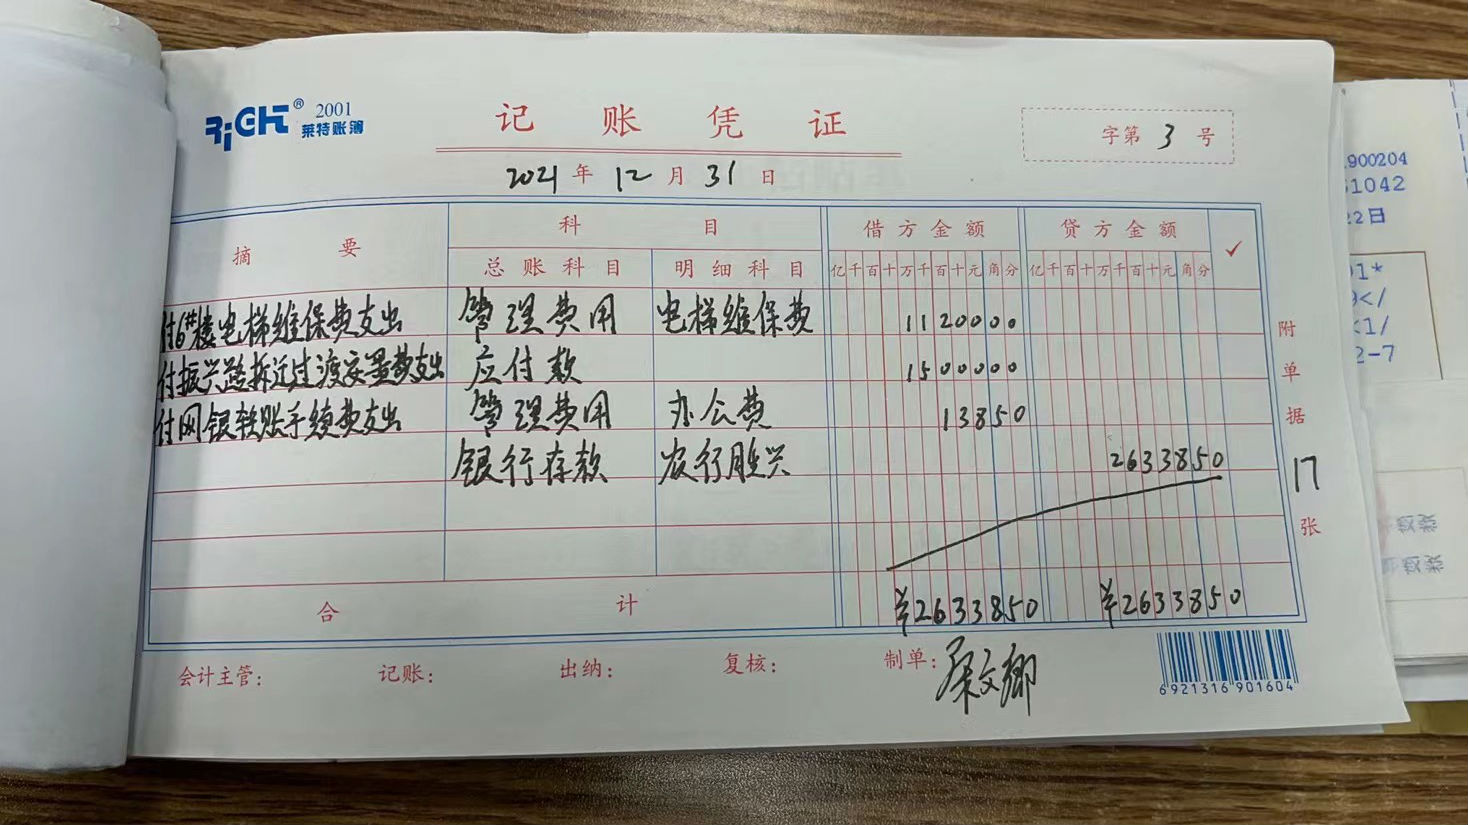 RiGHT® 2001
莱特账簿
记账凭证
字第 3 号
2021 年 12 月 31 日
摘要 科目 借方金额 贷方金额 ✓
总账科目 明细科目 亿千百十万千百十元角分 亿千百十万千百十元角分
付6#楼电梯维保费支出 管理费用 电梯维保费 1120000
付振兴路拆迁过渡安置费支出 应付款 1500000
付网银转账手续费支出 管理费用 办公费 13850
银行存款 农行胜兴 2633850
合计 ¥2633850 ¥2633850
附单据 17 张
会计主管: 记账: 出纳: 复核: 制单:
6921316901604
900204
51042
22日
1*
</
<1/
2-7